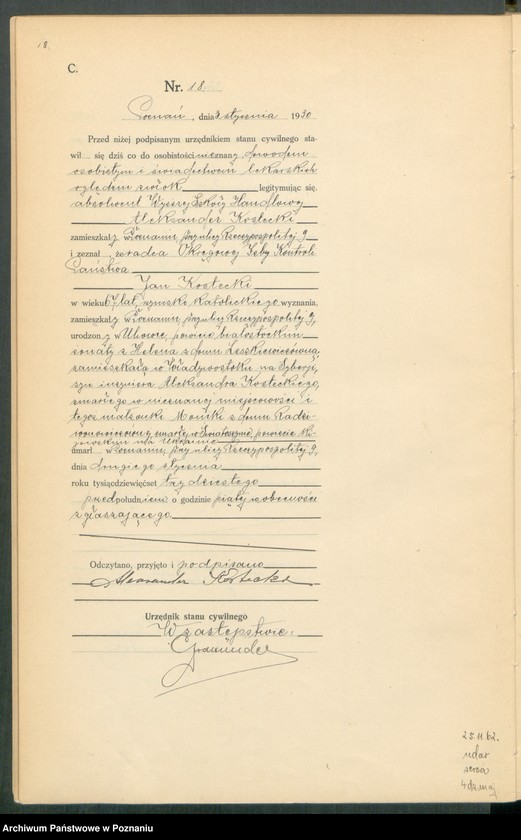 18.
C.
Nr. 18
Poznań, dnia 3 stycznia 1930
Przed niżej podpisanym urzędnikiem stanu cywilnego sta-
wił się dziś co do osobistości nieznany, dowodem
osobistym i świadectwem lekarskich
oględzin zwłok legitymując się,
absolwent Wyższej Szkoły Handlowej
Aleksander Kostecki
zamieszkały w Poznaniu, przy ulicy Rzeczypospolitej 9
i zeznał, że radca Okręgowej Izby Kontroli
Państwa
Jan Kostecki
w wieku 67 lat, rzymsko katolickiego wyznania,
zamieszkały w Poznaniu, przy ulicy Rzeczypospolitej 9,
urodzony w Uhowie, powiecie białostockim
żonaty z Heleną z domu
zamieszkałą w Władywostoku na Syberji,
syn inżyniera Aleksandra Kosteckiego,
zmarłego w nieznanej miejscowości i
tegoż małżonki Moniki z domu
zmarłej w powiecie
na Ukrainie
umarł w Poznaniu, przy ulicy Rzeczypospolitej 9,
dnia drugiego stycznia
roku tysiącdziewięćset trzydziestego
przedpołudniem o godzinie piątej w obecności
zgłaszającego.
Odczytano, przyjęto i podpisano
Aleksander Kostecki
Urzędnik stanu cywilnego
W zastępstwie:
25.11.62.
udar
serca
Archiwum Państwowe w Poznaniu